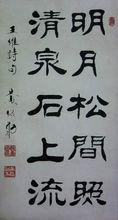 明月松間照
清泉石上流
王維詩句